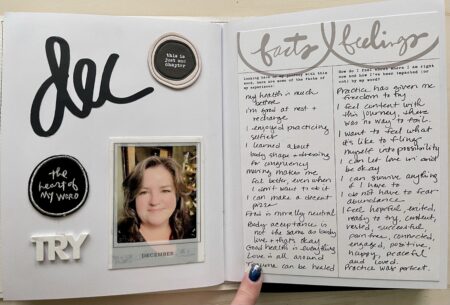 dec
this is
just one
chapter
the
heart of
MY WORD
TRY
DECEMBER
facts
feelings
Looking back on my journey with this
word, here are some of the facts of
my experience:
my health is much
better
I'm good at rest +
recharge
I enjoyed practicing
selfies
I learned about
body shape + dressing
for congruency
moving makes me
feel better, even when
I don't want to do it
I can make a decent
pizza
Food is morally neutral
Body acceptance is
not the same as body
love + that's okay
Good health is everything
Love is all around
can be healed
How do I feel about where I am right
now and how I've been impacted (or
not) by my word?
Practice has given me
freedom to try
I feel content with
this journey, there
was no way to fail.
I want to feel what
it's like to fling
myself into possibility
I can let love in and
be okay
I can survive anything
if I have to
I do not have to fear
abundance
I feel hopeful, excited,
ready to try, content,
rested, successful,
pain free, connected,
engaged, positive,
happy, peaceful
and loved.
Practice was perfect.